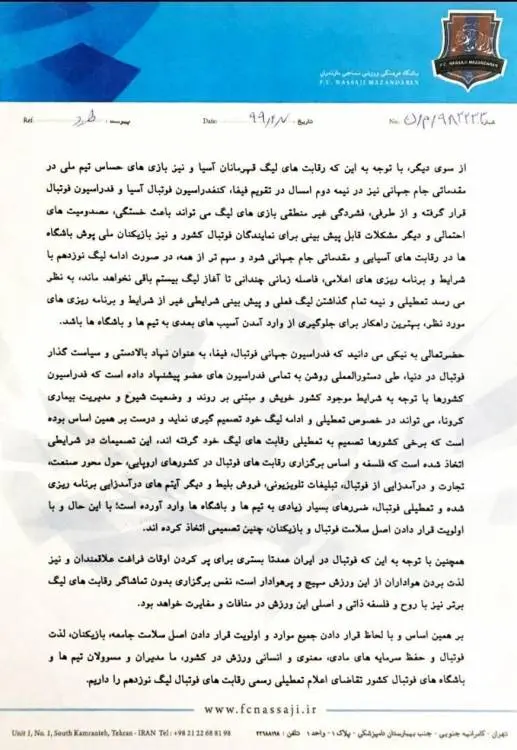 باشگاه فرهنگی ورزشی نساجی مازندران
F.C. NASSAJI MAZANDARAN
F.C. NASSAJI MAZANDARAN
Ref پیوست: دارد Date تاریخ: ۹۹/۲/۷ No.
از سوی دیگر، با توجه به این که رقابت های لیگ قهرمانان آسیا و نیز بازی های حساس تیم ملی در
مقدماتی جام جهانی نیز در نیمه دوم امسال در تقویم فیفا، کنفدراسیون فوتبال آسیا و فدراسیون فوتبال
قرار گرفته و از طرفی، فشردگی غیر منطقی بازی های لیگ می تواند باعث خستگی، مصدومیت های
احتمالی و دیگر مشکلات قابل پیش بینی برای نمایندگان فوتبال کشور و نیز بازیکنان ملی پوش باشگاه
ها در رقابت های آسیایی و مقدماتی جام جهانی شود و مهم تر از همه، در صورت ادامه لیگ نوزدهم با
شرایط و برنامه ریزی های اعلامی، فاصله زمانی چندانی تا آغاز لیگ بیستم باقی نخواهد ماند، به نظر
می رسد تعطیلی و نیمه تمام گذاشتن لیگ فعلی و پیش بینی شرایطی غیر از شرایط و برنامه ریزی های
مورد نظر، بهترین راهکار برای جلوگیری از وارد آمدن آسیب های بعدی به تیم ها و باشگاه ها باشد.
حضرتعالی به نیکی می دانید که فدراسیون جهانی فوتبال، فیفا، به عنوان نهاد بالادستی و سیاست گذار
فوتبال در دنیا، طی دستورالعملی روشن به تمامی فدراسیون های عضو پیشنهاد داده است که فدراسیون
کشورها با توجه به شرایط موجود کشور خویش و مبتنی بر روند و وضعیت شیوع و مدیریت بیماری
کرونا، می تواند در خصوص تعطیلی و ادامه لیگ خود تصمیم گیری نماید و درست بر همین اساس بوده
است که برخی کشورها تصمیم به تعطیلی رقابت های لیگ خود گرفته اند، این تصمیمات در شرایطی
اتخاذ شده است که فلسفه و اساس برگزاری رقابت های فوتبال در کشورهای اروپایی، حول محور صنعت،
تجارت و درآمدزایی از فوتبال، تبلیغات تلویزیونی، فروش بلیط و دیگر آیتم های درآمدزایی برنامه ریزی
شده و تعطیلی فوتبال، ضررهای بسیار زیادی به تیم ها و باشگاه ها وارد آورده است؛ با این حال و با
اولویت قرار دادن اصل سلامت فوتبال و بازیکنان، چنین تصمیمی اتخاذ کرده اند.
همچنین با توجه به این که فوتبال در ایران عمدتا بستری برای پر کردن اوقات فراغت علاقمندان و نیز
لذت بردن هواداران از این ورزش مهیج و پرهوادار است، نفس برگزاری بدون تماشاگر رقابت های لیگ
برتر نیز با روح و فلسفه ذاتی و اصلی این ورزش در منافات و مغایرت خواهد بود.
بر همین اساس و با لحاظ قرار دادن جمیع موارد و اولویت قرار دادن اصل سلامت جامعه، بازیکنان، لذت
فوتبال و حفظ سرمایه های مادی، معنوی و انسانی ورزش در کشور، ما مدیران و مسوولان تیم ها و
باشگاه های فوتبال کشور تقاضای اعلام تعطیلی رسمی رقابت های فوتبال لیگ نوزدهم را داریم.
www.fcnassaji.ir
تهران - کامرانیه جنوبی - جنب بیمارستان دامپزشکی - پلاک ۱ - واحد ۱ تلفن : ۲۲۶۸۸۱۹۸
Unit 1, No. 1, South Kamranieh, Tehran - IRAN Tel : +98 21 22 68 81 98